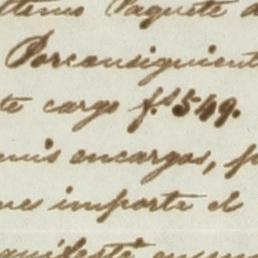 Paquete
Porconsiguient
te cargo f.s 549.
mis encargos, p
importe el